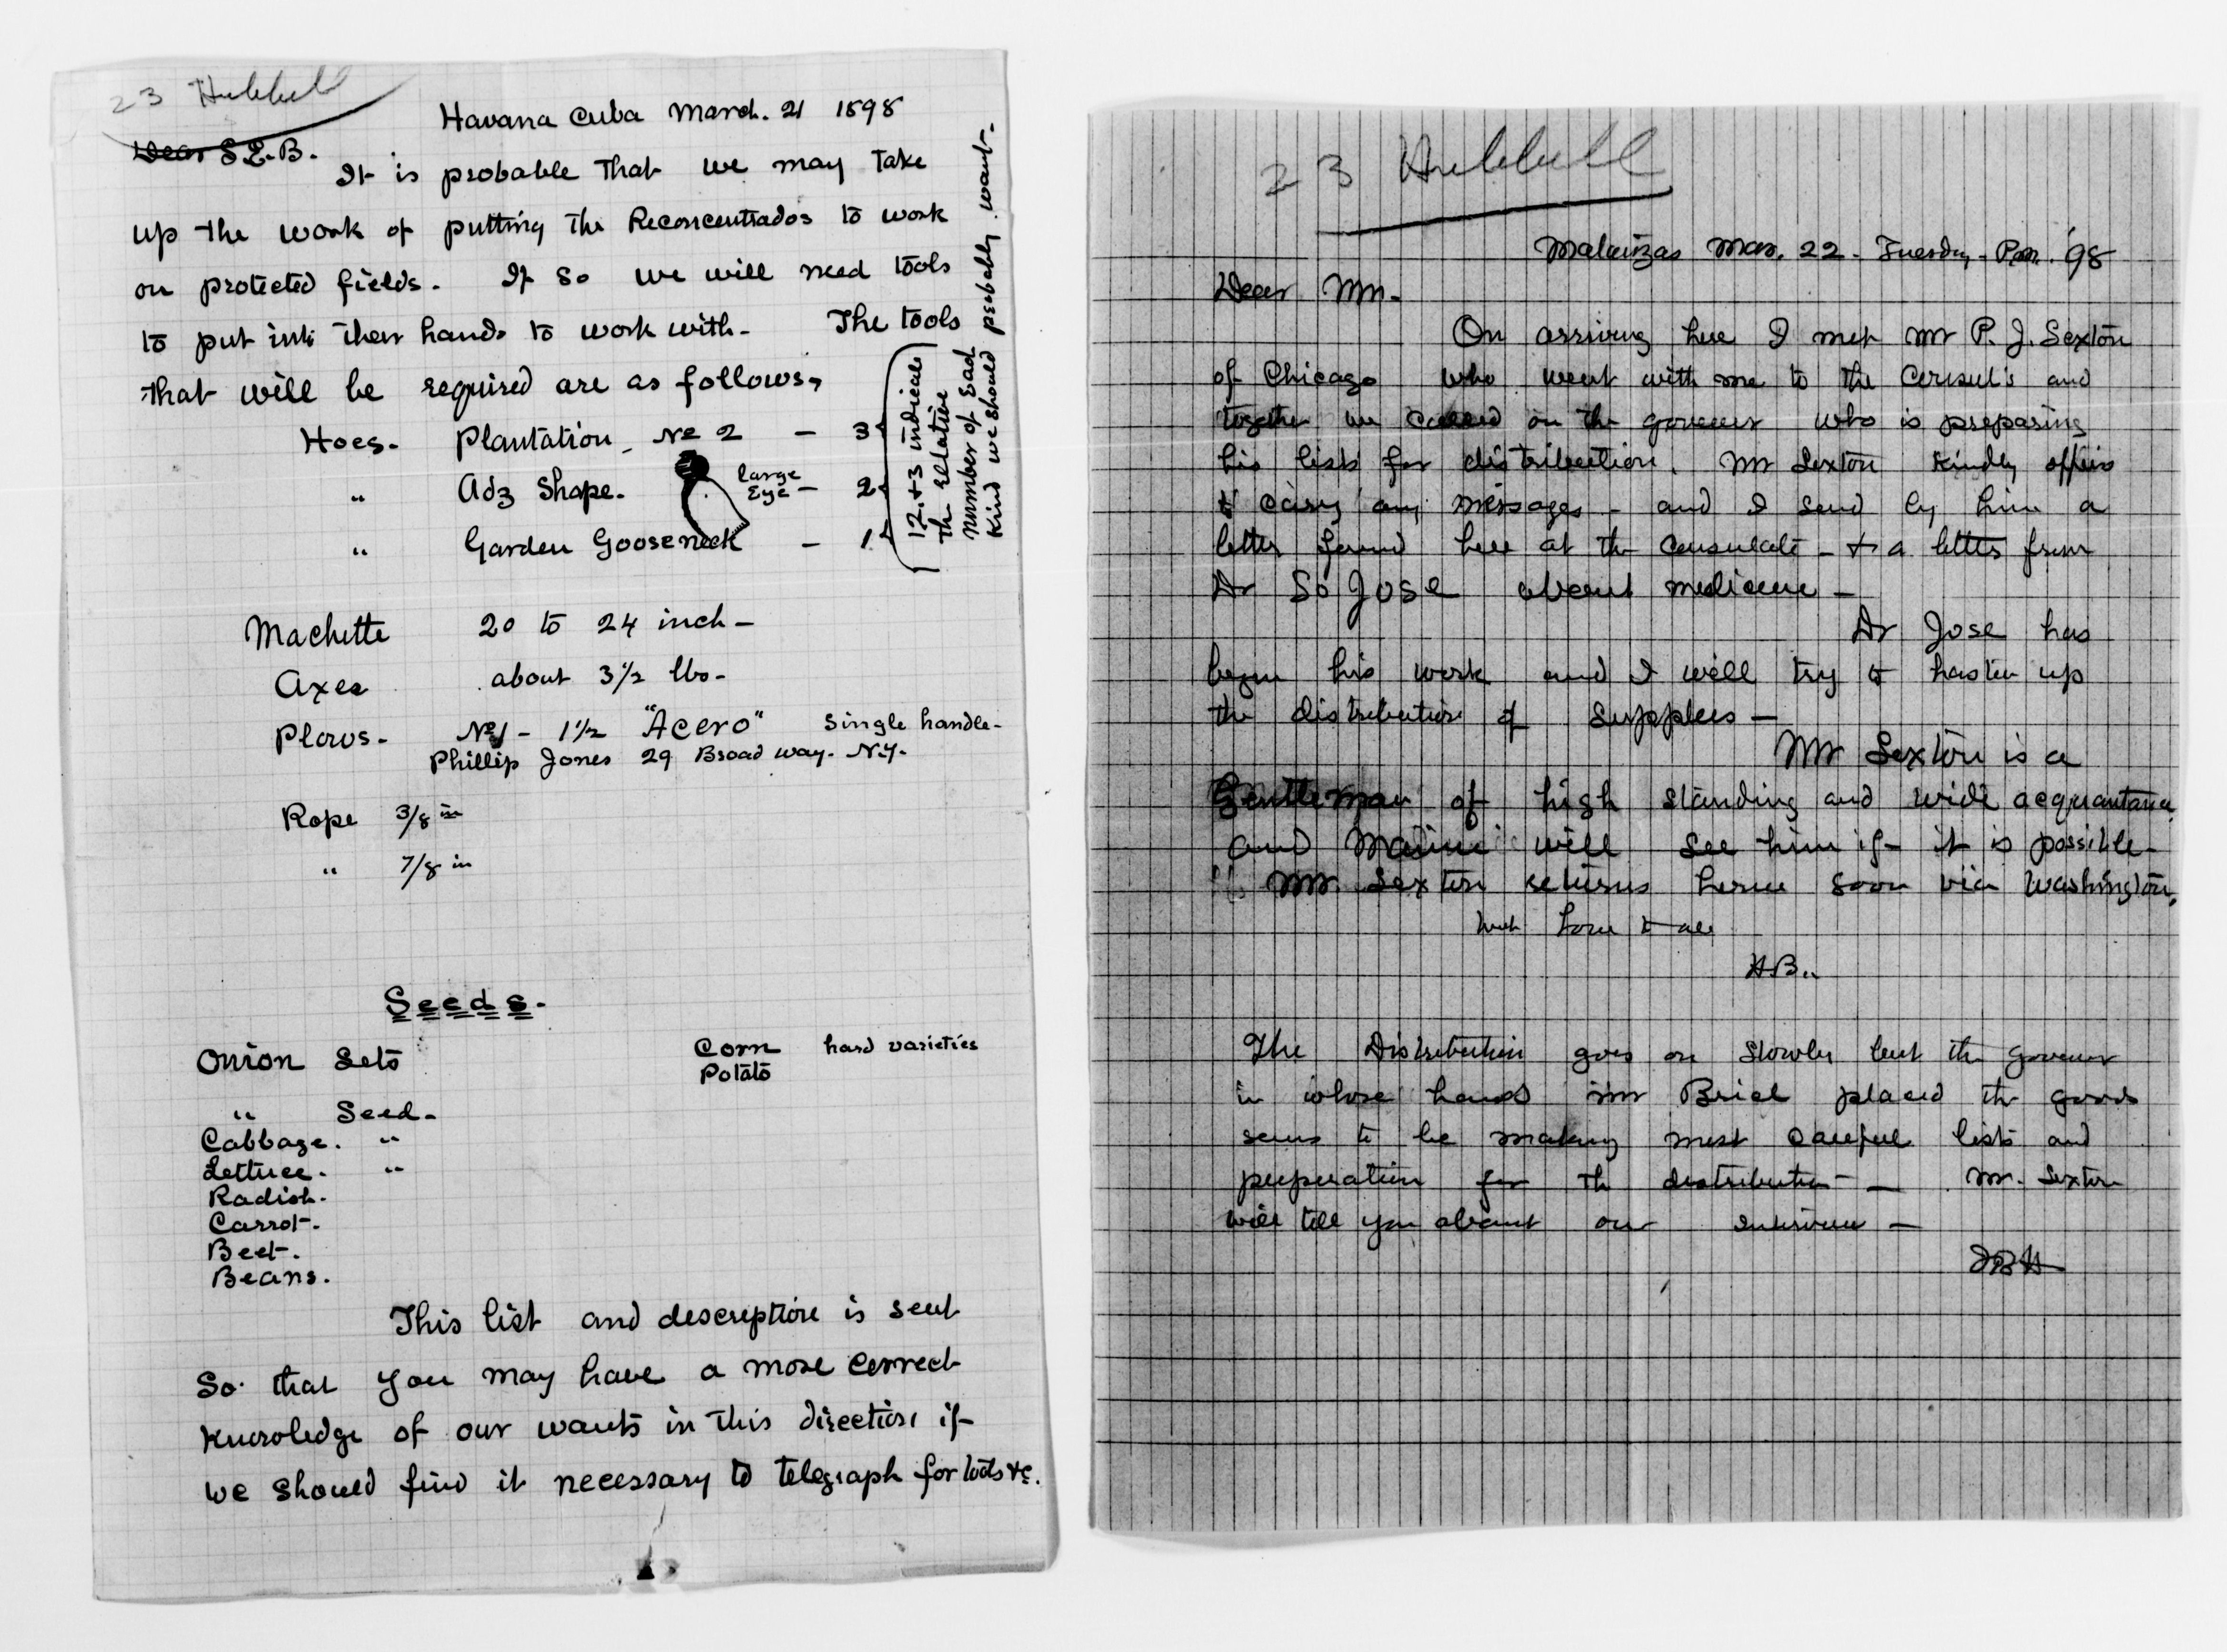 23 Hubbell
Havana Cuba March. 21 1898
Dear S E. B.
It is probable that we may take
up the work of putting the Reconcentrados to work
on protected fields. If so we will need tools
to put into their hands to work with - The tools
that will be required are as follows,
Hoes. Plantation No 2 - 3
" Adz Shape. large Eye - 2
" Garden Gooseneck - 1
1 2 + 3 indicate
the relative
number of each
kind we should probably want.
Machette 20 to 24 inch -
Axes about 3 1/2 lbs -
Plows - No 1 - 1 1/2 "Acero" Single handle -
Phillip Jones 29 Broad way. N.Y.
Rope 3/8 in
" 7/8 in
Seeds.
Onion Sets Corn hard varieties
Potato
" Seed -
Cabbage. "
Lettuce. "
Radish.
Carrot.
Beet.
Beans.
This list and descreption is sent
So that you may have a more correct
knowledge of our wants in this direction if
we should find it necessary to telegraph for tools &c.
23 Hubbell
Matanzas Mar. 22 - Tuesday - P.m. '98
Dear Mm.
On arriving here I met Mr P. J. Sexton
of Chicago who went with me to the Consul's and
together we called on the governer who is preparing
his lists for distribution. Mr Sexton kindly offers
to carry any messages - and I send by him a
letter found here at the Consulate - & a letter from
Dr So Jose about medicine -
Dr Jose has
begun his work and I will try to hasten up
the distribution of Supplies -
Mr Sexton is a
Gentleman of high standing and wide acquantance
and will see him if it is possible -
Mr. Sexton returns home soon via Washington,
With love to all
H.B.
The Distribution goes on slowly but the governer
in whose hands Mr placed the goods
seems to be making most careful lists and
preperation for the distribution - Mr. Sexton
will tell you about our interview -
JBH